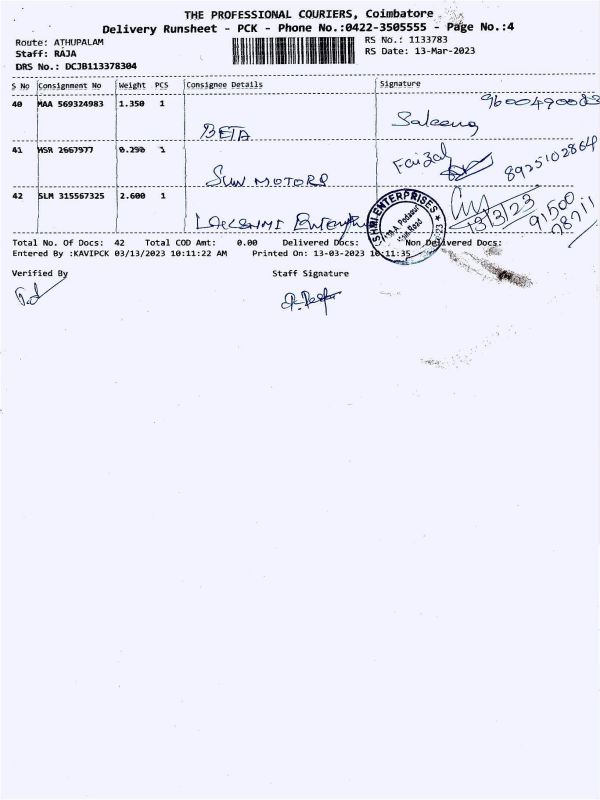 THE PROFESSIONAL COURIERS, Coimbatore
Delivery Runsheet - PCK - Phone No.:0422-3505555 - Page No.:4
Route: ATHUPALAM
Staff: RAJA
DRS No.: DCJB113378304
RS No.: 1133783
RS Date: 13-Mar-2023
S No Consignment No Weight PCS Consignee Details Signature
40 MAA 569324983 1.350 1 9600490083
BETA
41 HSR 2667977 0.290 1 Faizal 8925102864
SUN MOTORS
42 SLM 315567325 2.600 1 13/3/23 91500
LAKSHMI Enterpri 28711
SHMI ENTERPRISES
Main Road
Total No. Of Docs: 42 Total COD Amt: 0.00 Delivered Docs: Non Delivered Docs:
Entered By :KAVIPCK 03/13/2023 10:11:22 AM Printed On: 13-03-2023 10:11:35
Verified By Staff Signature